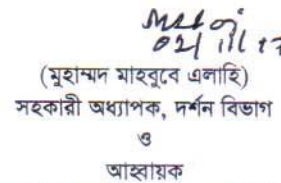 02/11/17
(মুহাম্মদ মাহবুবে এলাহি)
সহকারী অধ্যাপক, দর্শন বিভাগ
ও
আহ্বায়ক